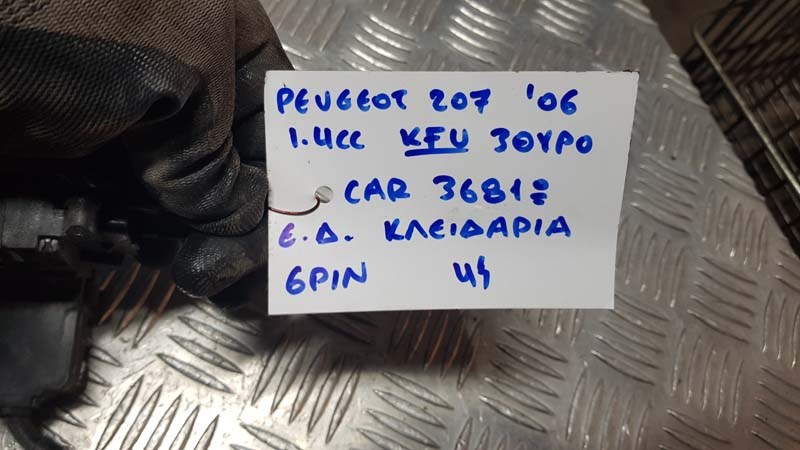 PEUGEOT 207 '06
1.4CC KFU 3ΘΥΡΟ
CAR 3681
Ε.Δ. ΚΛΕΙΔΑΡΙΑ
6PIN